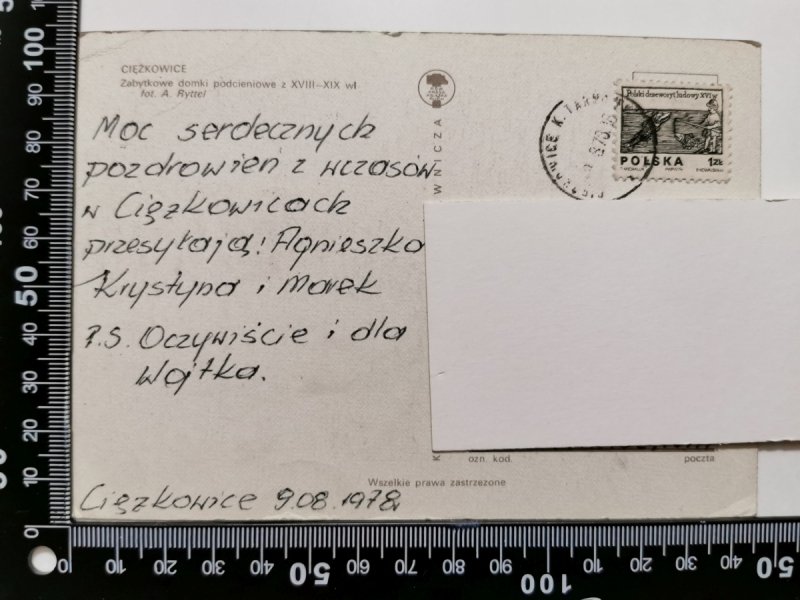 CIĘŻKOWICE
Zabytkowe domki podcieniowe z XVIII—XIX w.
fot. A. Ryttel
Moc serdecznych
pozdrowień z wczasów
w Ciężkowicach
przesyłają: Agnieszka
Krystyna i Marek
P.S. Oczywiście i dla
Wojtka.
Ciężkowice 9.08.1978r
Polski drzeworyt ludowy XVI w.
POLSKA 1ZŁ
CIĘŻKOWICE K. TARN
WNICZA
K
ozn. kod. poczta
Wszelkie prawa zastrzeżone
0 10 20 30 40 50 60 70 80 90 100
0 10 20 30 40 50 60 70 80 90 100 10 20 30 40 50